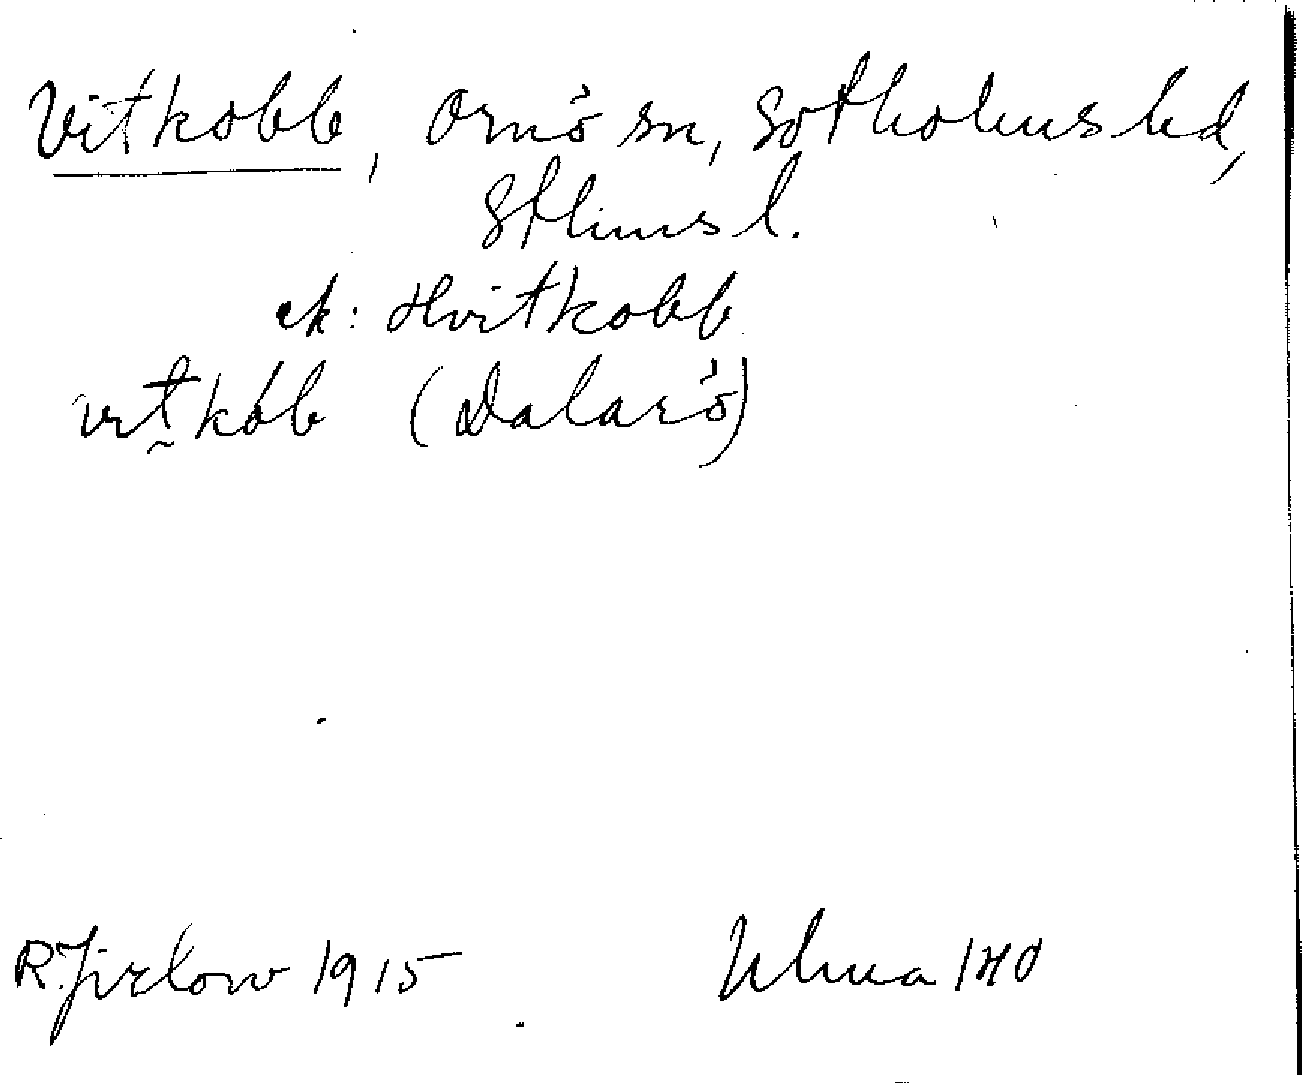 Vitkobb, Ornö sn, Sotholms hd,
Sthlms l.
ek: Hvitkobb
vıt̰kòb (Dalarö)
R. Jirlow 1915 Ulma 140